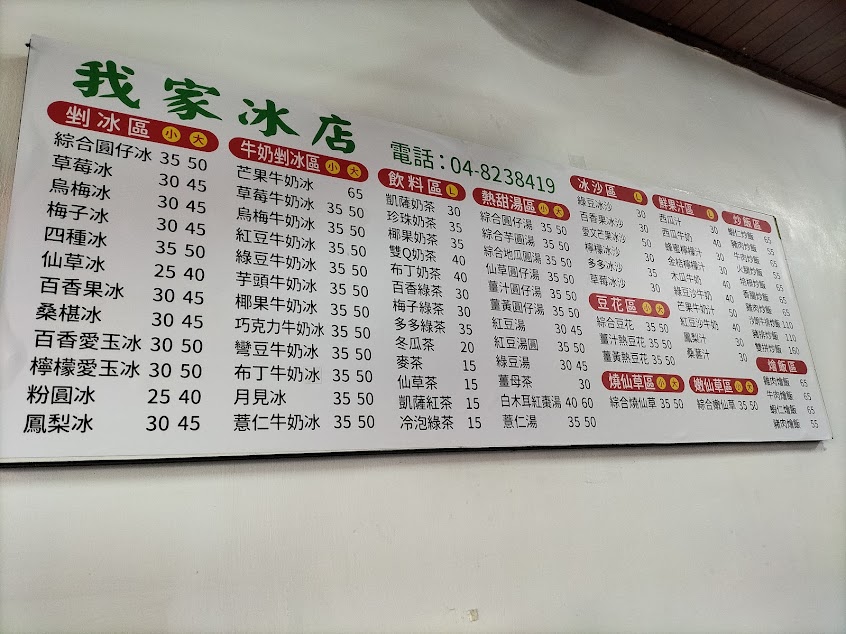 我家冰店
電話:04-8238419
剉冰區 小 大
綜合圓仔冰 35 50
草莓冰 30 45
烏梅冰 30 45
梅子冰 30 45
四種冰 35 50
仙草冰 25 40
百香果冰 30 45
桑椹冰 30 45
百香愛玉冰 30 50
檸檬愛玉冰 30 50
粉圓冰 25 40
鳳梨冰 30 45
牛奶剉冰區 小 大
芒果牛奶冰 65
草莓牛奶冰 35 50
烏梅牛奶冰 35 50
紅豆牛奶冰 35 50
綠豆牛奶冰 35 50
芋頭牛奶冰 35 50
椰果牛奶冰 35 50
巧克力牛奶冰 35 50
彎豆牛奶冰 35 50
布丁牛奶冰 35 50
月見冰 35 50
薏仁牛奶冰 35 50
飲料區 L
凱薩奶茶 30
珍珠奶茶 35
椰果奶茶 35
雙Q奶茶 40
布丁奶茶 40
百香綠茶 30
梅子綠茶 30
多多綠茶 35
冬瓜茶 20
麥茶 15
仙草茶 15
凱薩紅茶 15
冷泡綠茶 15
熱甜湯區 小 大
綜合圓仔湯 35 50
綜合芋圓湯 35 50
綜合地瓜圓湯 35 50
仙草圓仔湯 35 50
薑汁圓仔湯 35 50
薑黃圓仔湯 35 50
紅豆湯 30 45
紅豆湯圓 35 50
綠豆湯 30 45
薑母茶 30
白木耳紅棗湯 40 60
薏仁湯 35 50
冰沙區 L
綠豆冰沙 30
百香果冰沙 30
愛文芒果冰沙 50
檸檬冰沙 30
多多冰沙 35
草莓冰沙 30
豆花區 小 大
綜合豆花 35 50
薑汁熱豆花 35 50
薑黃熱豆花 35 50
燒仙草區 小 大
綜合燒仙草 35 50
鮮果汁區 L
西瓜汁 30
西瓜牛奶 40
蜂蜜檸檬汁 30
金桔檸檬汁 30
木瓜牛奶 40
綠豆沙牛奶 40
芒果牛奶汁 50
紅豆沙牛奶 40
鳳梨汁 30
桑葚汁 30
嫩仙草區 小 大
綜合嫩仙草 35 50
炒飯區
蝦仁炒飯 65
雞肉炒飯 55
牛肉炒飯 65
火腿炒飯 55
培根炒飯 65
香腸炒飯 65
豬肉炒飯 55
炒飯 110
雞排炒飯 110
雙拼炒飯 160
燴飯區
雞肉燴飯 65
牛肉燴飯 65
蝦仁燴飯 65
豬肉燴飯 55